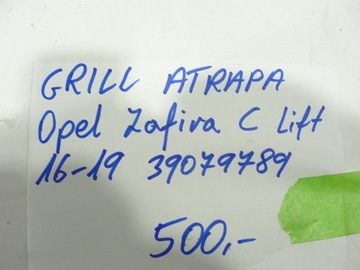 GRILL ATRAPA
Opel Zafira C Lift
16-19 39079789
500,-